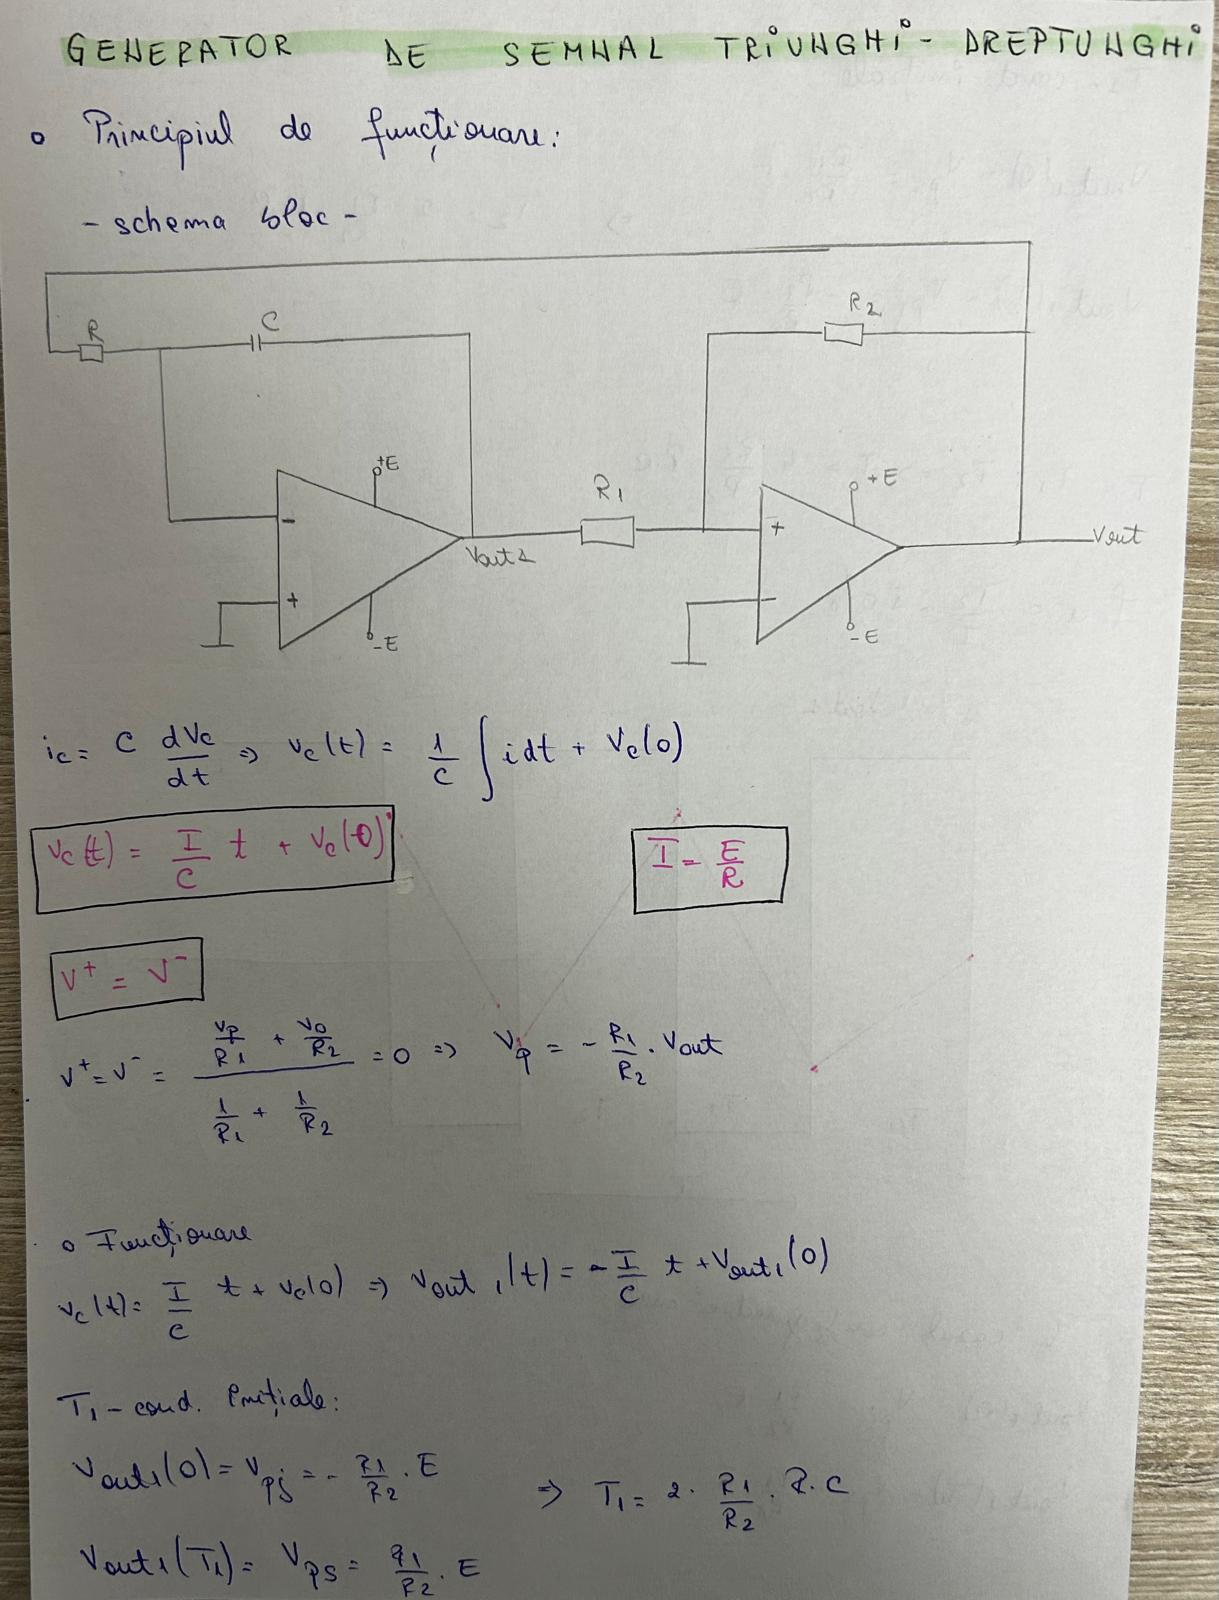 GENERATOR DE SEMNAL TRIUNGHI - DREPTUNGHI
Principiul de funcționare:
- schema bloc -
R C R2
+E
R1
+E
- + Vout
Vout1
+ -
-E -E
ic = C dVc/dt => vc(t) = 1/C ∫ i dt + Vc(0)
vc(t) = I/C t + Vc(0) I = E/R
V+ = V-
V+ = V- = (Vp/R1 + Vo/R2) / (1/R1 + 1/R2) = 0 => Vp = - R1/R2 . Vout
Funcționare
vc(t) = I/C t + vc(0) => Vout1(t) = - I/C t + Vout1(0)
T1 - cond. inițiale:
Vout1(0) = Vpj = - R1/R2 . E
=> T1 = 2. R1/R2 . R.C
Vout1(T1) = Vps = R1/R2 . E